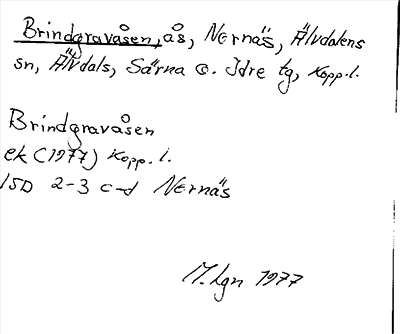 Brindgravåsen, ås, Nornäs, Älvdalens
sn, Älvdals, Särna o. Idre tg, Kopp. l.
Brindgravåsen
ek (1977) Kopp. l.
15D 2-3 c-d Nornäs
M. Lgn 1977